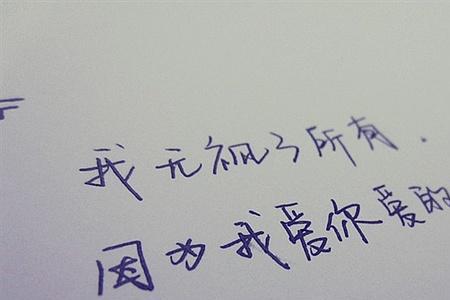 我无视了所有.
因为我爱你爱的